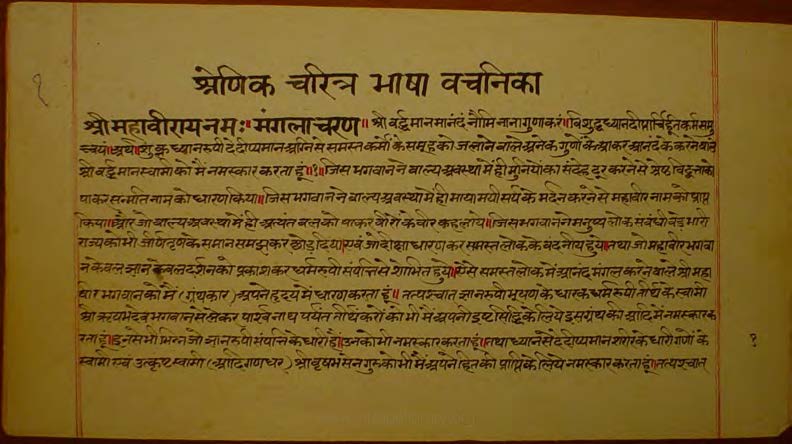 १
श्रेणिक चरित्र भाषा वचनिका
श्री महावीराय नमः॥ मंगलाचरण॥ श्री वर्द्धमानमानंदं नौमि नानागुणाकरं॥ विशुद्धध्यानदीप्तार्चिर्हुतकर्मसमु
च्चयं॥ अर्थ॥ शुक्लध्यानरूपी देदीप्यमान अग्नि से समस्त कर्मों के समूह को जलाने वाले अनेक गुणों के आकर आनंद के करने वाले
श्री वर्द्धमान स्वामी को मैं नमस्कार करता हूं॥१॥ जिस भगवान ने बाल्य अवस्था में ही मुनियों का संदेह दूर करने से श्रेष्ठ विद्वता को
पाकर सन्मति नाम को धारण किया॥ जिस भगवान ने बाल्य अवस्था में ही मायामयी सर्प के मर्दन करने से महावीर नाम को प्राप्त
किया॥ और जो बाल्य अवस्था में ही अत्यंत बल को पाकर वीरों के वीर कहलाये॥ जिस भगवान ने मनुष्य लोक संबंधी बड़े भारी
राज्य को भी जीर्ण तृण के समान समझ कर छोड़ दिया॥ एवं जो दीक्षा धारण कर समस्त लोक के वंदनीय हुये॥ तथा जो महावीर भगवा
न केवल ज्ञान केवल दर्शन को प्रकाश कर धर्मरूपी संपत्ति से शोभित हुये॥ ऐसे समस्त लोक में आनंद मंगल करने वाले श्री महा
वीर भगवान को मैं (ग्रंथकार) अपने हृदय में धारण करता हूं॥ तत्पश्चात ज्ञानरूपी भूषण के धारक धर्मरूपी तीर्थ के स्वामी
श्री ऋषभदेव भगवान से लेकर पार्श्वनाथ पर्यंत तीर्थंकरों को भी मैं अपनी इष्ट सिद्धि के लिये इस ग्रंथ की आदि में नमस्कार क
रता हूं॥ इनसे भी भिन्न जो ज्ञानरूपी संपत्ति के धारी हैं॥ उनको भी नमस्कार करता हूं॥ तथा ध्यान से देदीप्यमान शरीर के धारी गणों के
स्वामी एवं उत्कृष्ट स्वामी (आदि गणधर) श्री वृषभसेन गुरु को भी मैं अपने हित की प्राप्ति के लिये नमस्कार करता हूं॥ तत्पश्चात
१